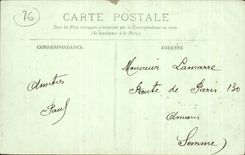 76
CARTE POSTALE
Tous les Pays étrangers n'acceptent pas la Correspondance au recto
(Se renseigner à la Poste)
CORRESPONDANCE
ADRESSE
Monsieur Lamarre
Route de Paris 130
Amiens
Somme
Amitiés
Paul